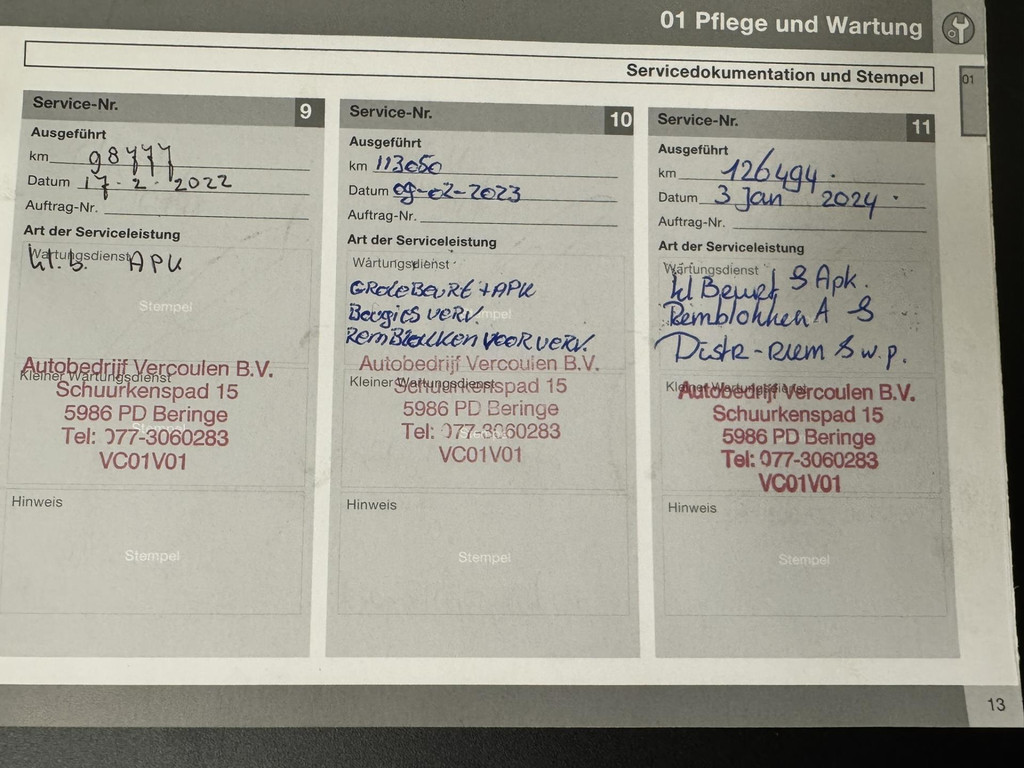 01 Pflege und Wartung
01
Servicedokumentation und Stempel
Service-Nr. 9
Ausgeführt
km 98777
Datum 17-2-2022
Auftrag-Nr.
Art der Serviceleistung
Wartungsdienst
kl. b. APK
Stempel
Autobedrijf Vercoulen B.V.
Kleiner Wartungsdienst
Schuurkenspad 15
5986 PD Beringe
Tel: 077-3060283
VC01V01
Hinweis
Stempel
Service-Nr. 10
Ausgeführt
km 113050
Datum 09-02-2023
Auftrag-Nr.
Art der Serviceleistung
Wartungsdienst
GROTE BEURT + APK
Bougies verv.
RemBlokken voor verv.
Autobedrijf Vercoulen B.V.
Kleiner Wartungsdienst
Schuurkenspad 15
5986 PD Beringe
Tel: 077-3060283
VC01V01
Hinweis
Stempel
Service-Nr. 11
Ausgeführt
km 126494.
Datum 3 Jan 2024.
Auftrag-Nr.
Art der Serviceleistung
Wartungsdienst
kl Beurt & Apk.
Remblokken A &
Distr-Riem & w.p.
Kleiner Wartungsdienst
Autobedrijf Vercoulen B.V.
Schuurkenspad 15
5986 PD Beringe
Tel: 077-3060283
VC01V01
Hinweis
Stempel
13